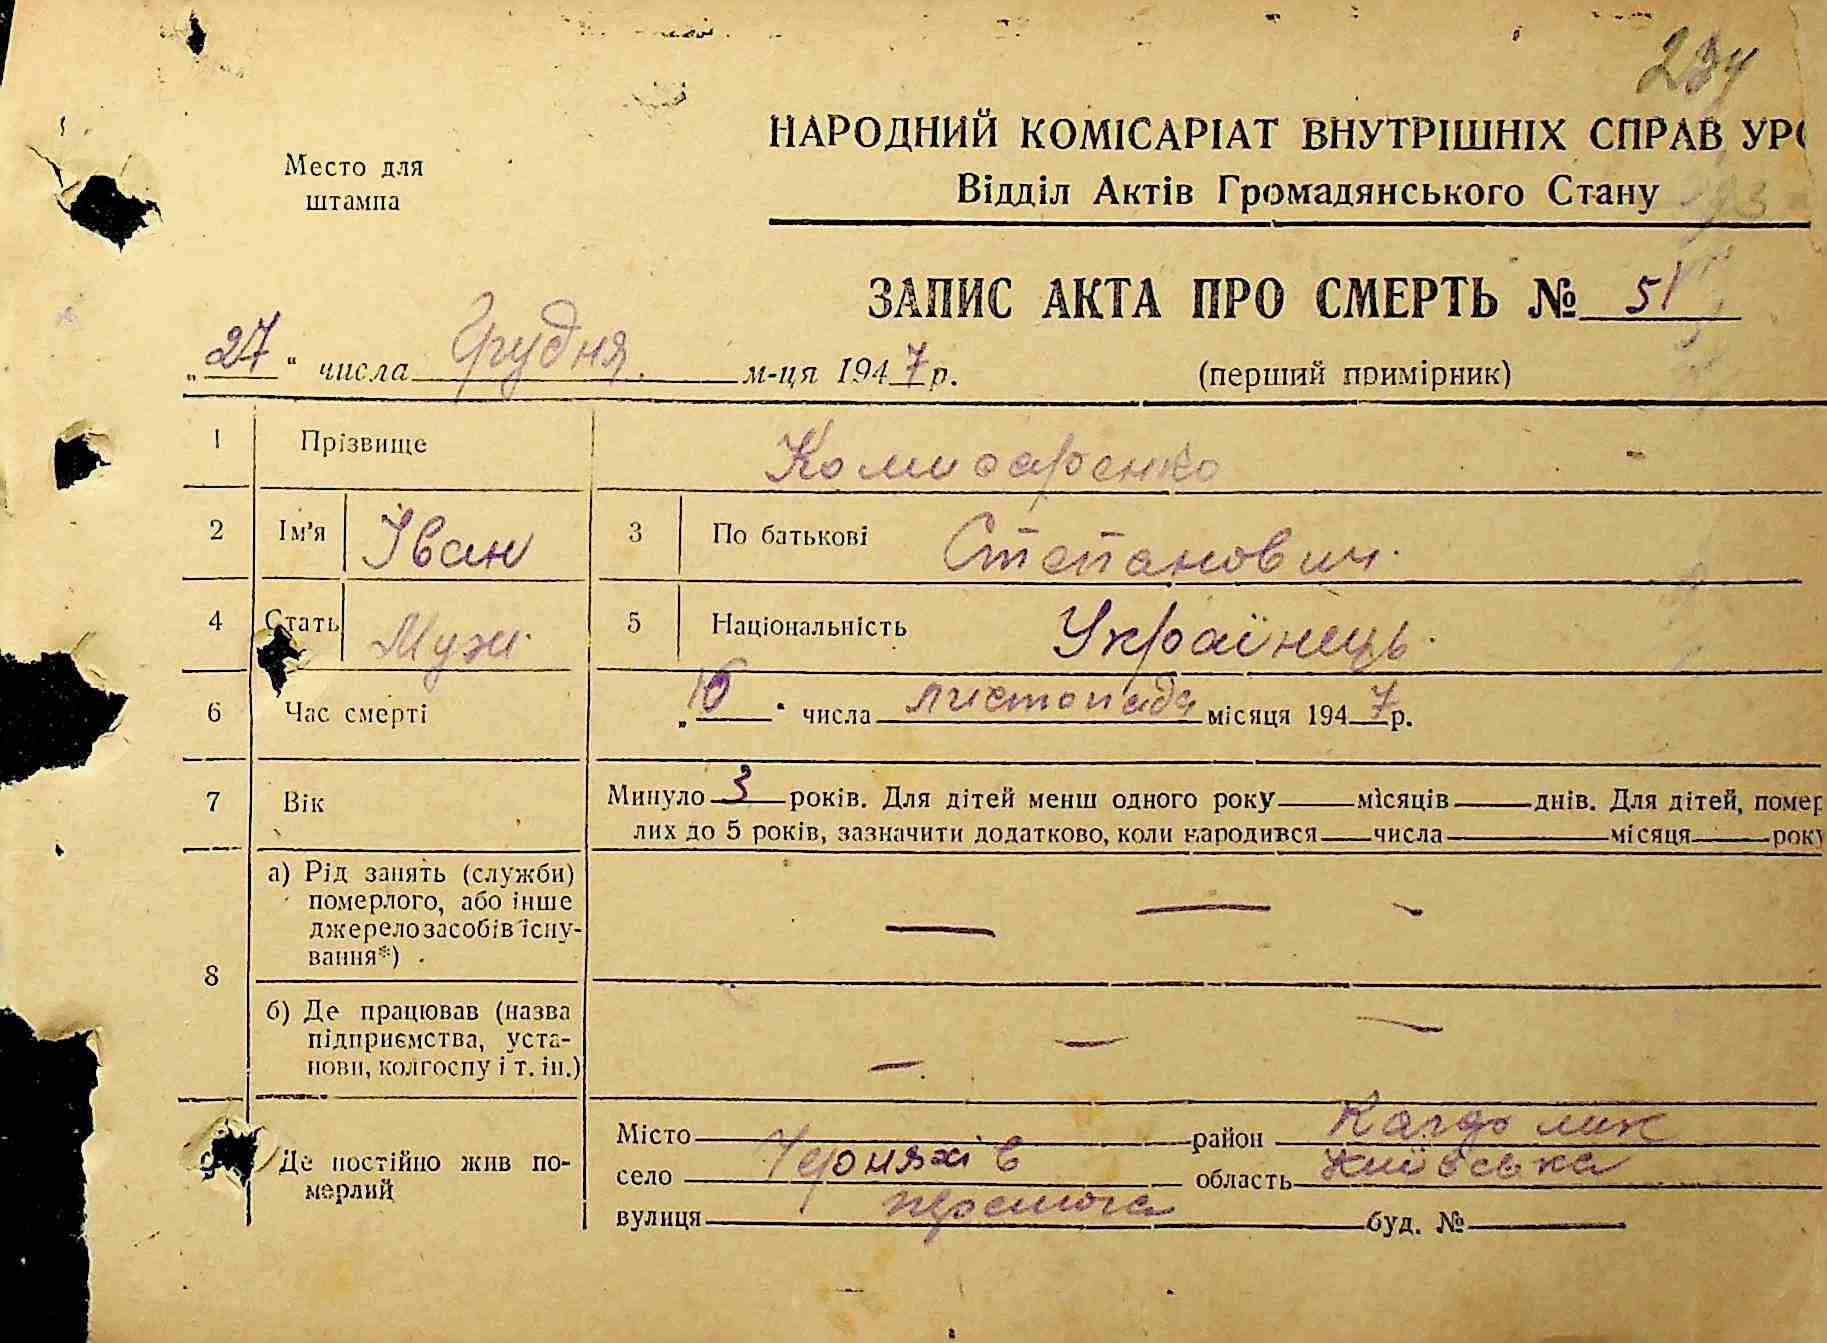 234
НАРОДНИЙ КОМІСАРІАТ ВНУТРІШНІХ СПРАВ УРС
Место для
штампа
Відділ Актів Громадянського Стану
ЗАПИС АКТА ПРО СМЕРТЬ № 51
„27“ числа Грудня м-ця 1947 р. (перший примірник)
1 Прізвище Комисаренко
2 Ім'я Іван 3 По батькові Степанович.
4 Стать Муж. 5 Національність Українець.
6 Час смерті „16“ числа листопада місяця 1947 р.
7 Вік Минуло 3 років. Для дітей менш одного року — місяців — днів. Для дітей, помер
лих до 5 років, зазначити додатково, коли народився — числа — місяця — року
8 а) Рід занять (служби)
померлого, або інше
джерело засобів існу-
вання*) — — —
б) Де працював (назва
підприємства, уста-
нови, колгоспу і т. ін.) — — —
9 Де постійно жив по-
мерлий
Місто район Кагарлик
село Черняхів область Київська
вулиця буд. №